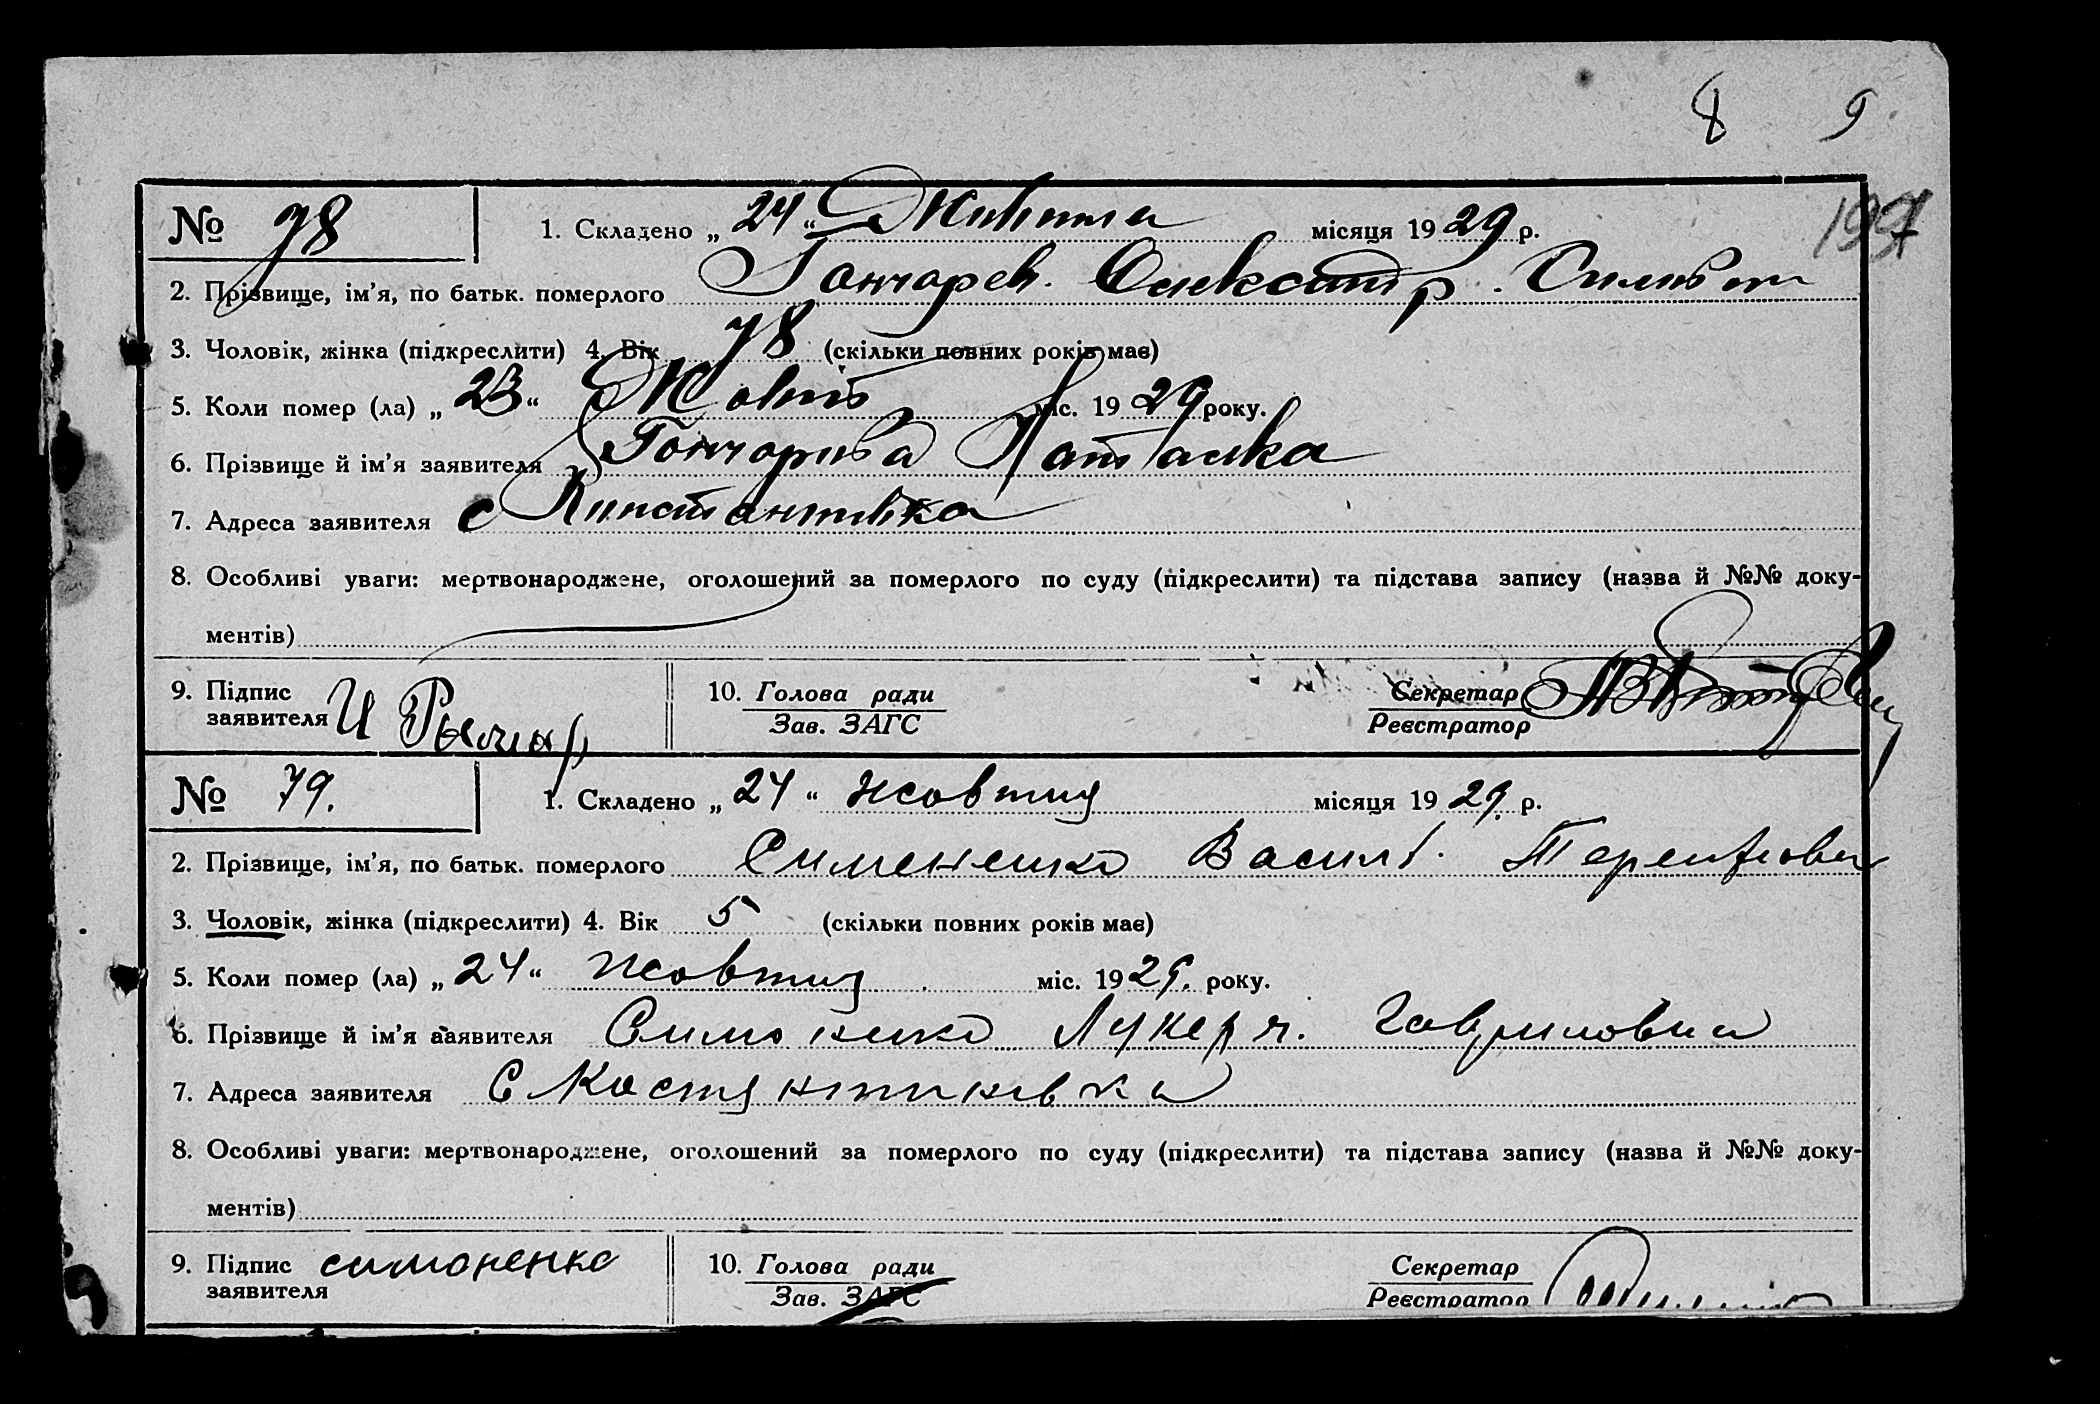 8 9
197
№ 78 1. Складено „ 24 “ Жовтня місяця 19 29 р.
2. Прізвище, ім’я, по батьк. померлого Гончарев. Олександр.
3. Чоловік, жінка (підкреслити) 4. Вік 78 (скільки повних років має)
5. Коли помер (ла) „ 23 “ Жовт міс. 19 29 року.
6. Прізвище й ім’я заявителя Гончарива Наталка
7. Адреса заявителя с
8. Особливі уваги: мертвонароджене, оголошений за померлого по суду (підкреслити) та підстава запису (назва й №№ доку-
ментів)
9. Підпис заявителя И 10. Голова ради Зав. ЗАГС Секретар Реєстратор
№ 79. 1. Складено „ 24 “ жовтня місяця 19 29. р.
2. Прізвище, ім’я, по батьк. померлого Симененко Василь.
3. Чоловік, жінка (підкреслити) 4. Вік 5 (скільки повних років має)
5. Коли помер (ла) „ 24 “ жовтня міс. 19 29. року.
6. Прізвище й ім’я заявителя Симоненко Лукер я. Гавриловна
7. Адреса заявителя С Костянтинівка
8. Особливі уваги: мертвонароджене, оголошений за померлого по суду (підкреслити) та підстава запису (назва й №№ доку-
ментів)
9. Підпис заявителя симоненко 10. Голова ради Зав. ЗАГС Секретар Реєстратор